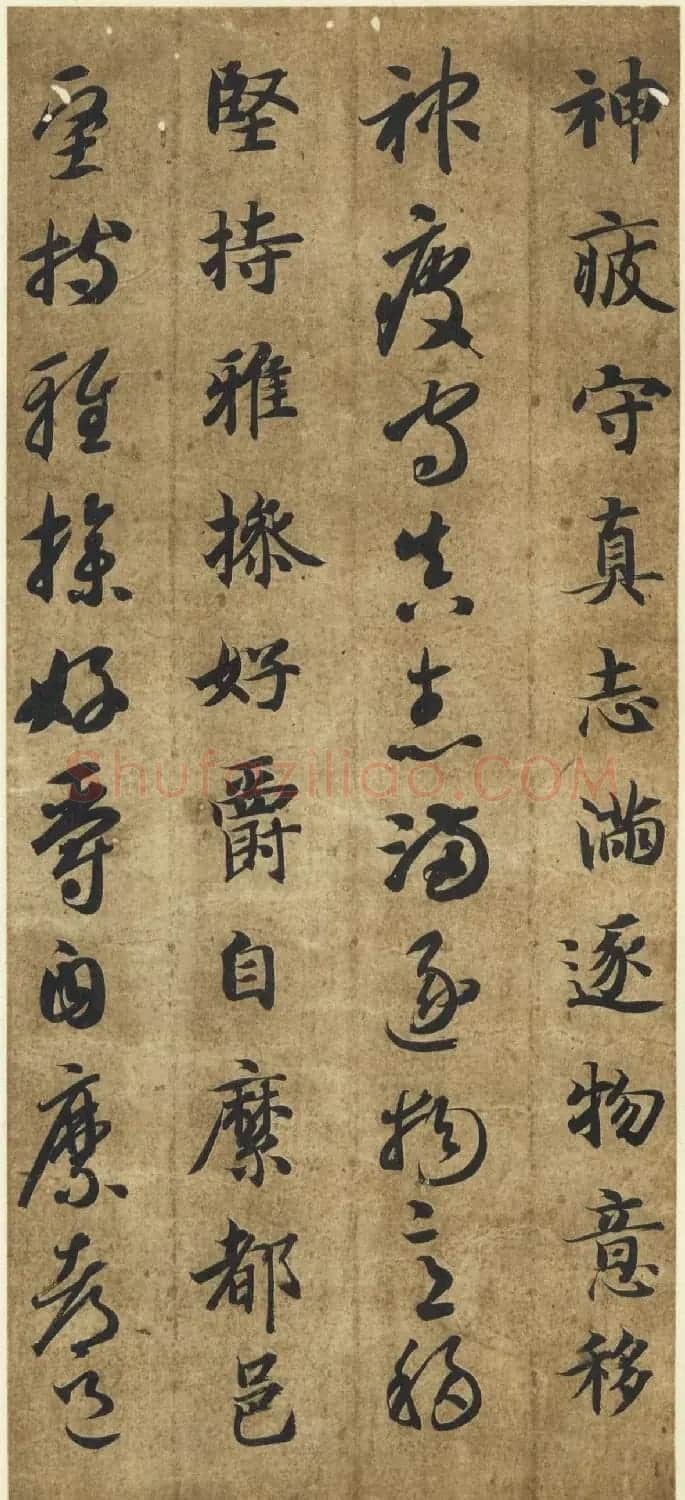 神疲守真志滿逐物意移
神疲守真志滿逐物意移
堅持雅操好爵自縻都邑
堅持雅操好爵自縻都邑
Shufaziliao.COM